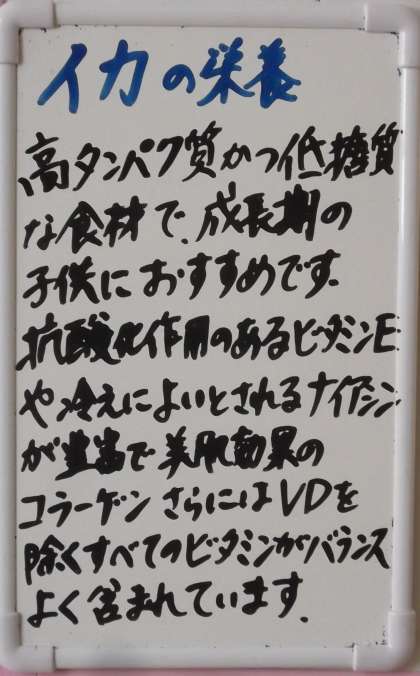 イカの栄養
高タンパク質かつ低糖質
な食材で、成長期の
子供におすすめです.
抗酸化作用のあるビタミンE
や冷えによいとされるナイアシン
が豊富で美肌効果の
コラーゲン さらにはVDを
除くすべてのビタミンがバランス
よく含まれています.